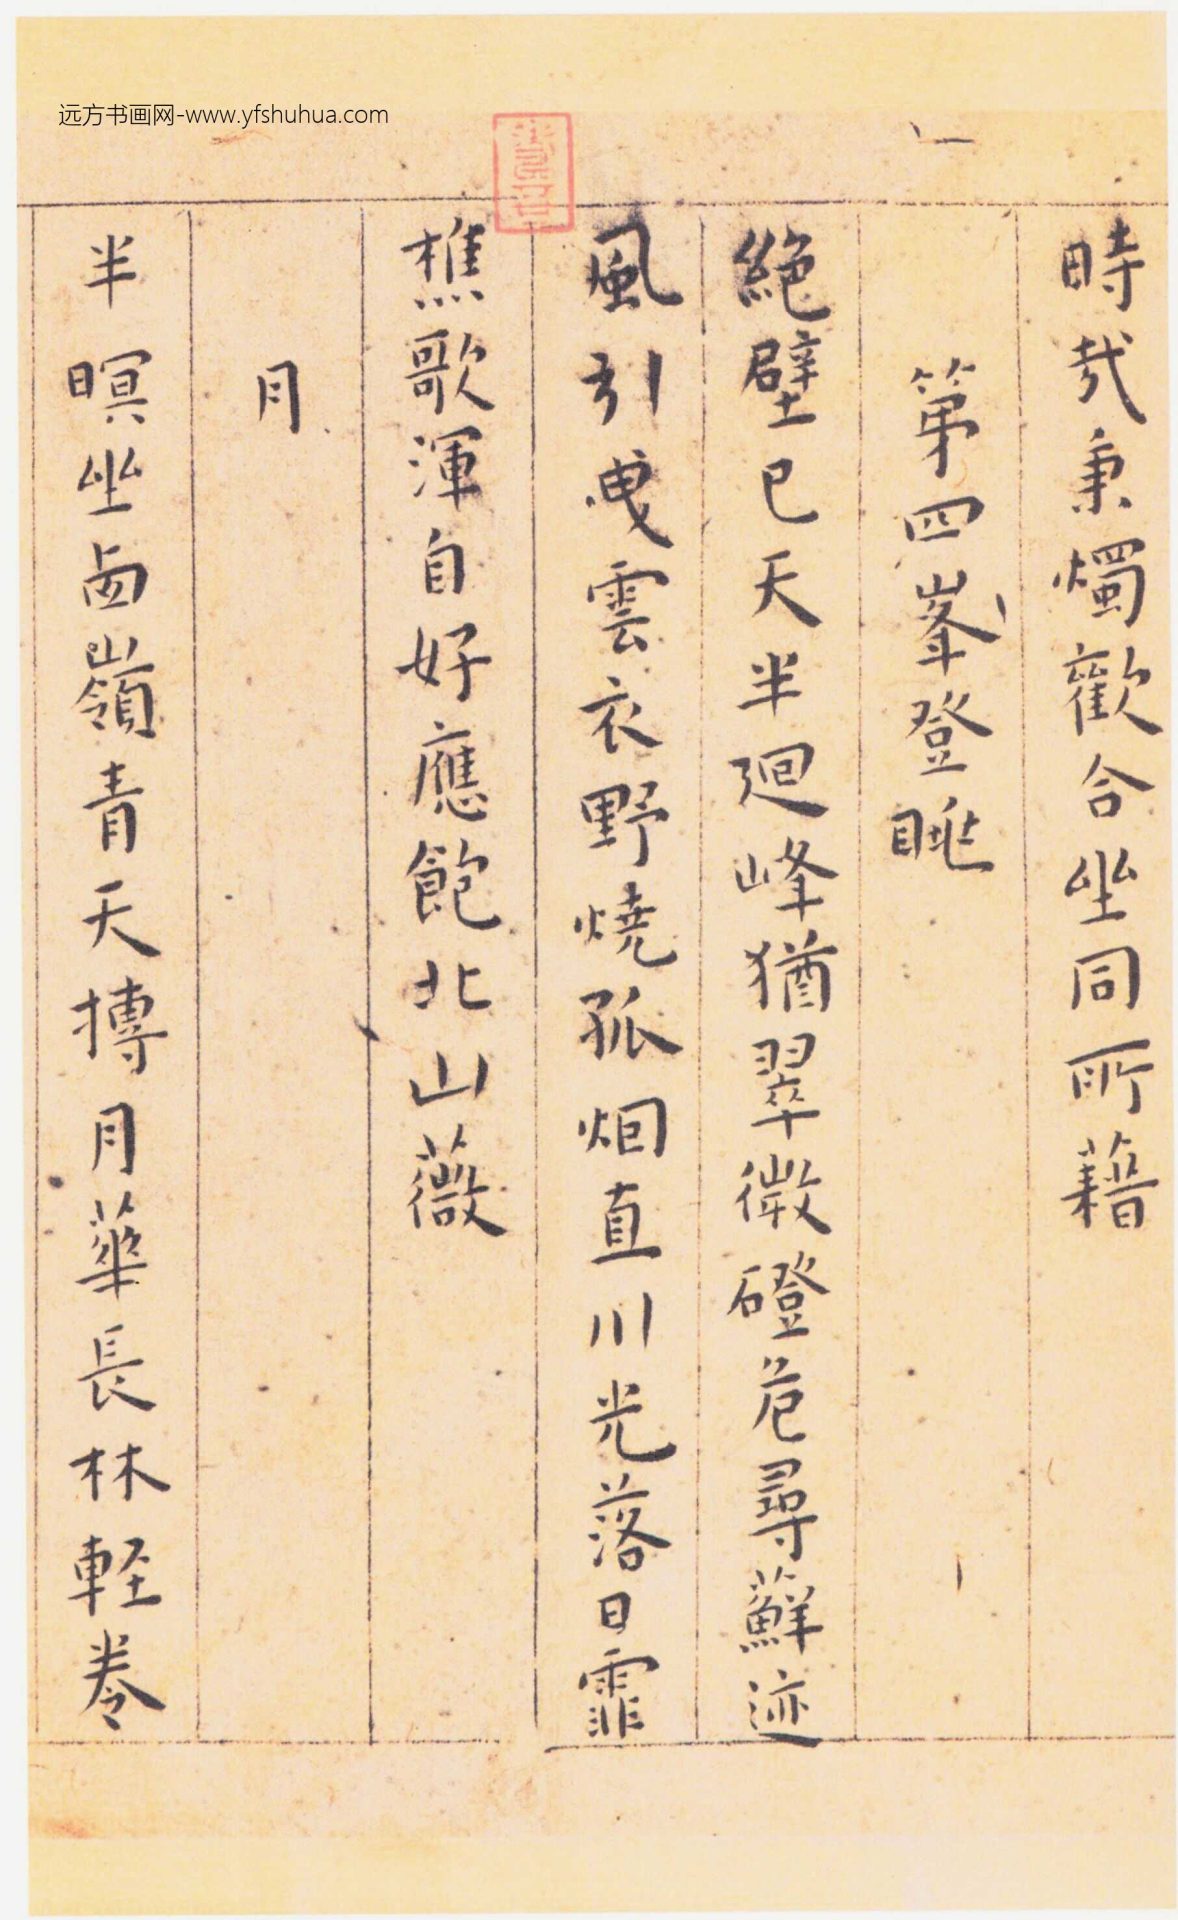 远方书画网-www.yfshuhua.com
時哉秉燭歡合坐同所藉
第四峯登眺
絶壁已天半廻峰猶翠微磴危尋蘚迹
風引曳雲衣野燒孤烟直川光落日霏
樵歌渾自好應飽北山薇
月
半暝坐西嶺青天摶月華長林軽卷